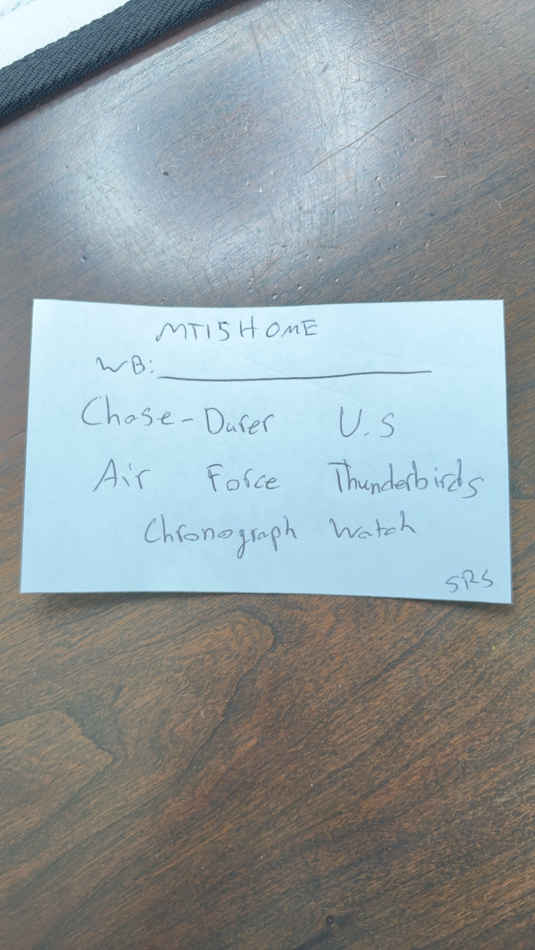 MTI5HOME
WB:
Chase-Durer U.S
Air Force Thunderbirds
Chronograph Watch
SRS